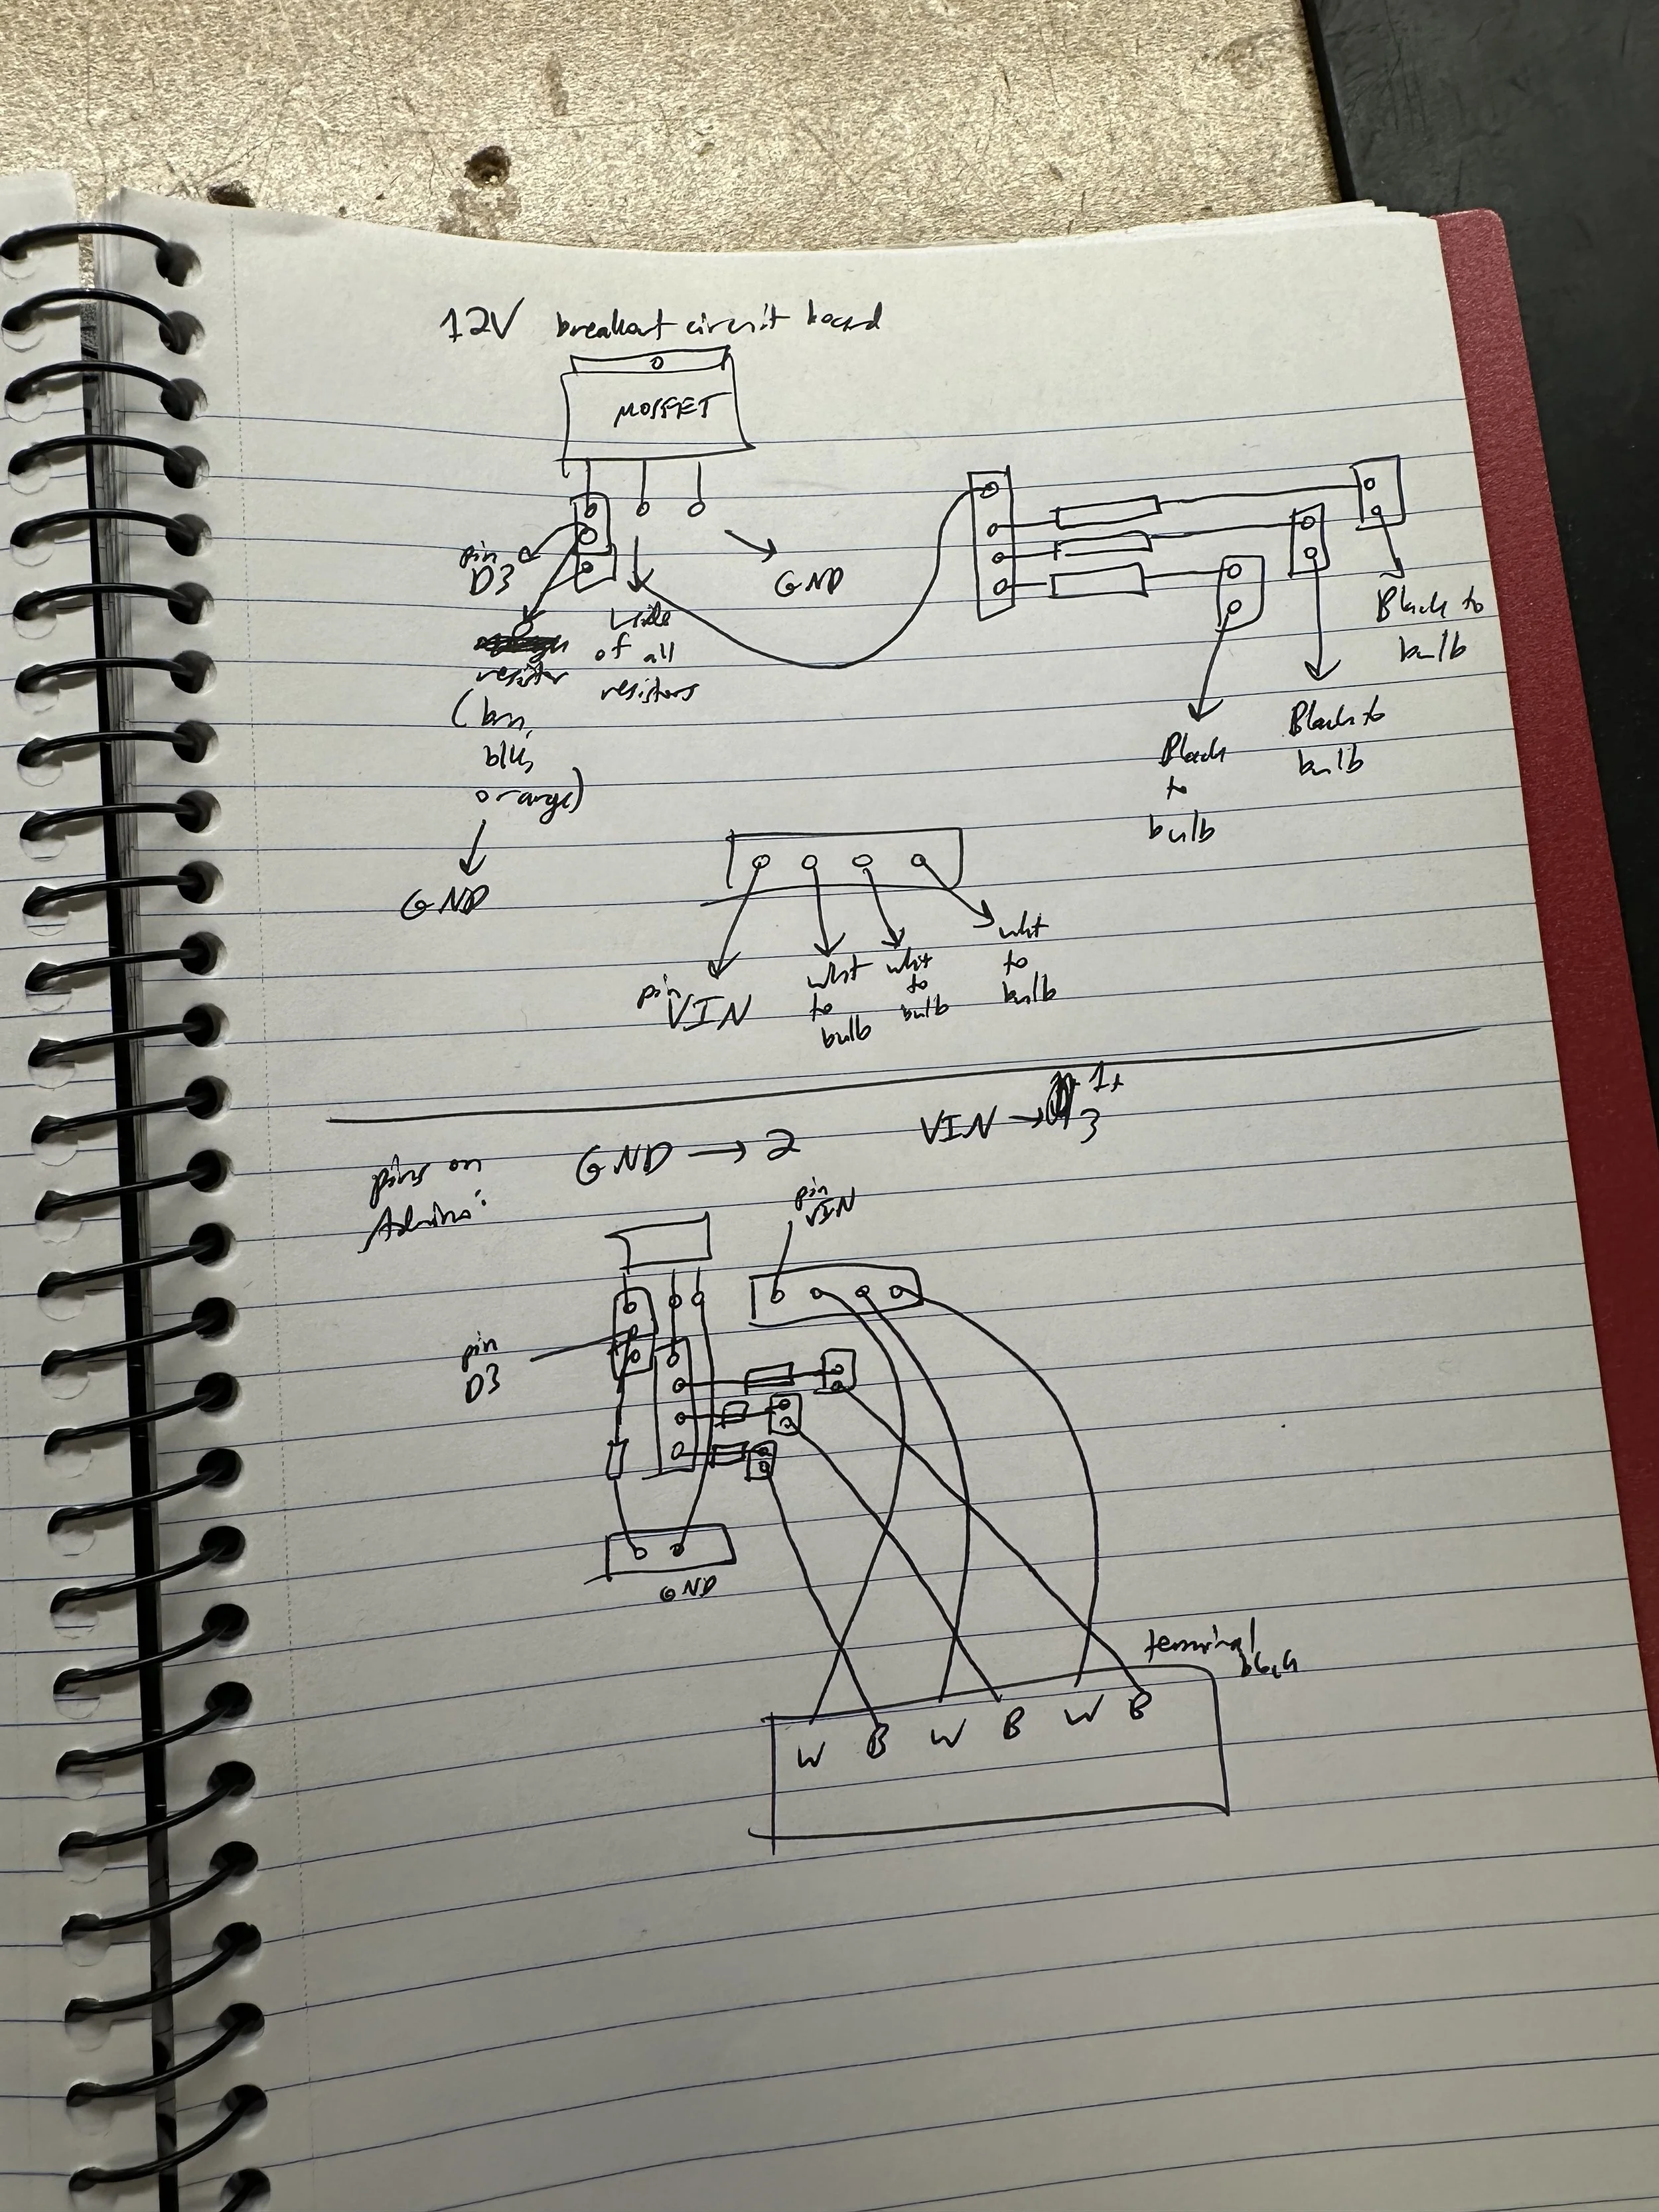 12V breakout circuit board
MOSFET
pin
D3
GND
resistor
(brn,
blk,
orange)
GND
L side
of all
resistors
Black to
bulb
Black to
bulb
Black
to
bulb
pin
VIN
wht
to
bulb
wht
to
bulb
wht
to
bulb
pins on
GND → 2
VIN → 1+
3
pin
VIN
pin
D3
GND
terminal
W B W B W B